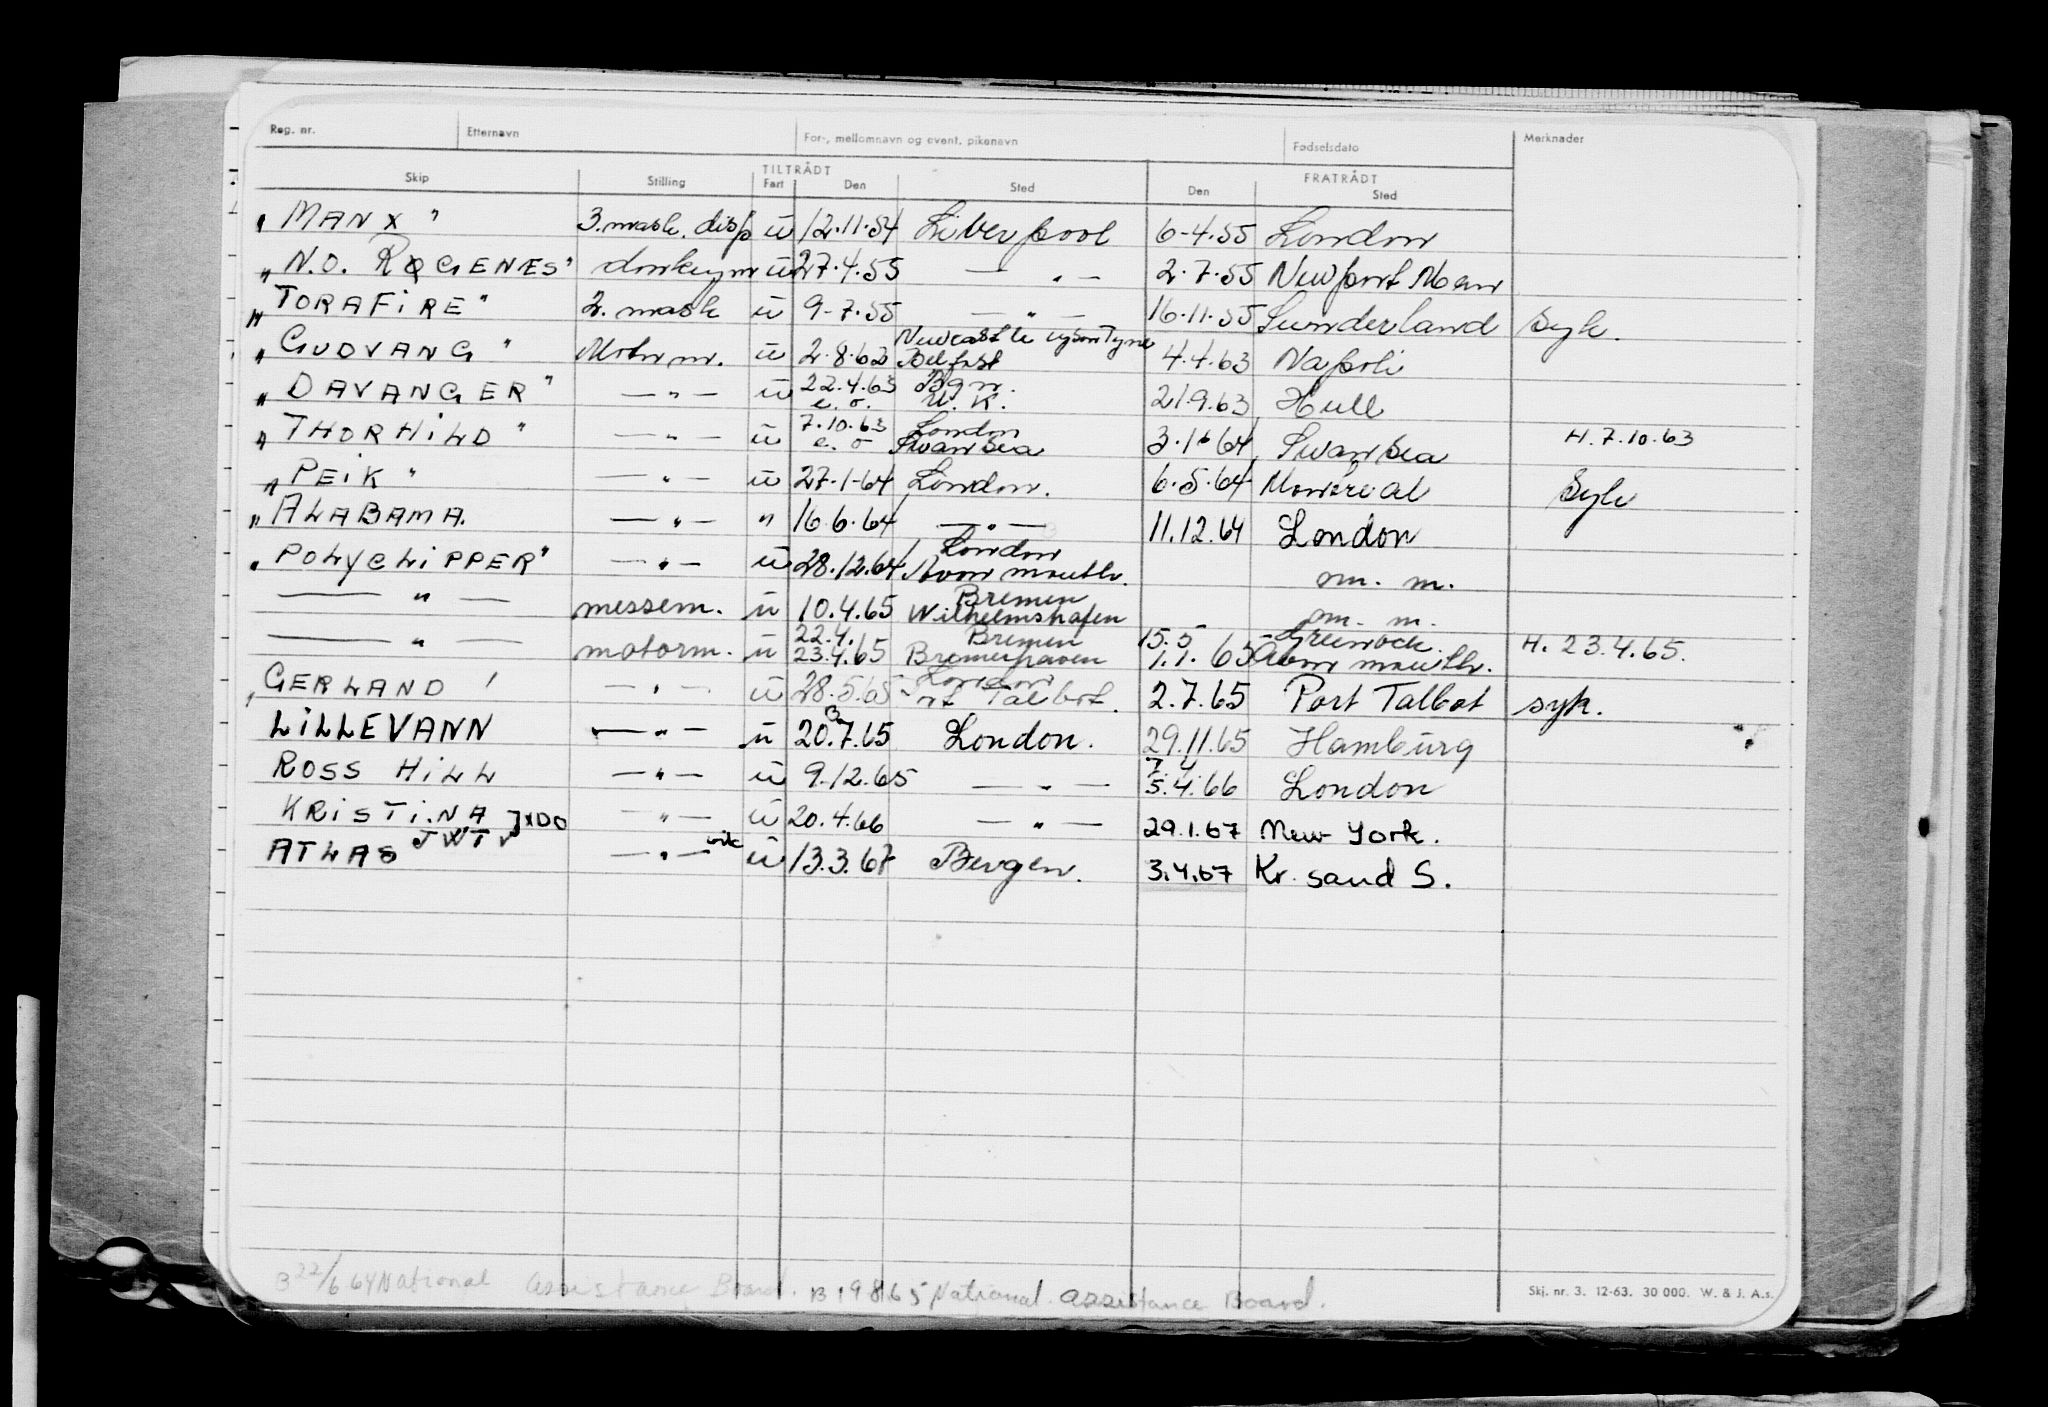 Reg. nr. Etternavn For-, mellomnavn og event. pikenavn Fødselsdato Merknader
TILTRÅDT FRATRÅDT
Skip Stilling Fart Den Sted Den Sted
"MANX" 3. mask. disp ū 12.11.54 Liverpool 6-4.55 London
"N.O. ROGENÆS" donkeym ū 27.4.55 — " — 2.7.55 Newport Mon
"TORAFIRE" 2. mask ū 9-7.55 — " — 16.11.55 Sunderland Syk.
"GUDVANG" Motorm. ū 2.8.62 Newcastle upon Tyne Belfast 4.4.63 Napoli
"DAVANGER" — " — ū 22.4.63 e.o. Bgn. U.K. 21.9.63 Hull
"THORHILD" — " — ū 7.10.63 e.o London Swansea 3.1.64 Swansea H.7.10.63
"PEIK" — " — ū 27.1-64 London. 6.5.64 Montreal Syk
"ALABAMA. — " — " 16.6.64 — " — 11.12.64 London
"POLYCLIPPER" — " — ū 28.12.64 London Avonmouth. m. m.
— " — messem. ū 10.4.65 Bremen Wilhelmshafen m. m.
— " — motorm. ū 22.4. 23.4.65 Bremen Bremerhaven 15.5 1.1.65 Greenock Avonmouth. H. 23.4.65.
"GERLAND" — " — ū 28.5.65 London Port Talbot. 2.7.65 Port Talbot syk.
LILLEVANN — " — ū 20.7.65 London. 29.11.65 Hamburg
ROSS HILL — " — ū 9.12.65 — " — 7.4 5.4.66 London
KRISTINA — " — ū 20.4.66 — " — 29.1.67 New York.
ATLAS JWTV — " — vik ū 13.3.67 Bergen. 3.4.67 Kr. sand S.
B 22/6 64 National Assistance Board. B 19 8 65 National assistance Board.
Skj. nr. 3. 12-63. 30 000. W. & J. A.s.